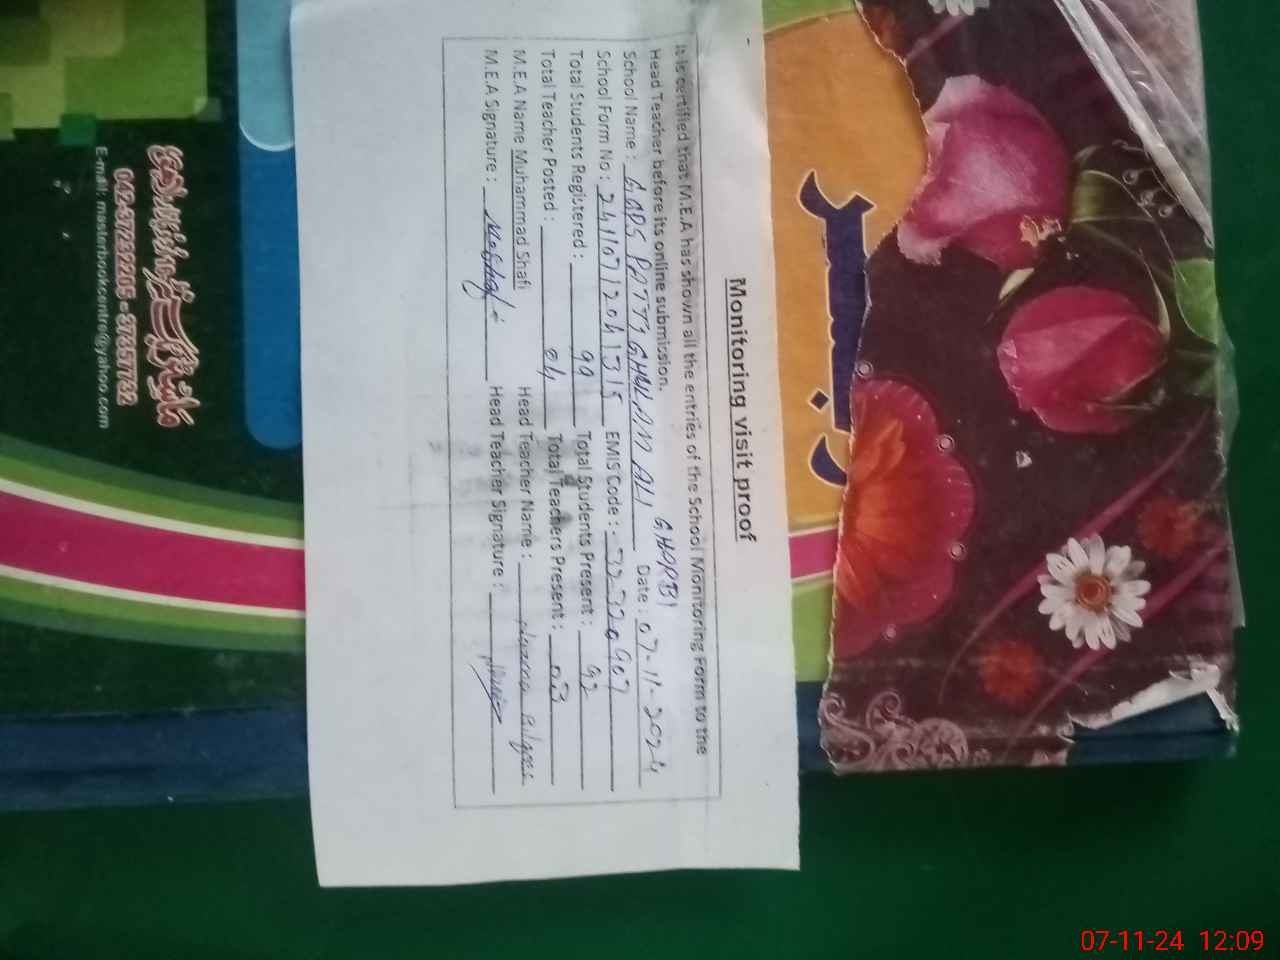 Monitoring visit proof
It is certified that M.E.A has shown all the entries of the School Monitoring Form to the
Head Teacher before its online submission.
GHARBI
School Name : GGPS PATTI GHULAM ALI Date : 07-11-2024
School Form No : 24110712041315 EMIS Code : 32320907
Total Students Registered : 99 Total Students Present : 92
Total Teacher Posted : 04 Total Teachers Present : 03
M.E.A Name Muhammad Shafi Head Teacher Name :
M.E.A Signature : Head Teacher Signature :
رجسٹر
042-37239205 - 37857732
E-mail: masterbookcentre@yahoo.com
07-11-24 12:09